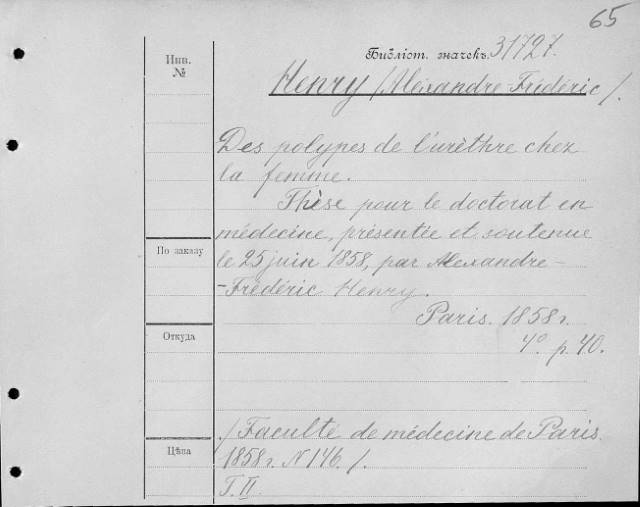 65
Инв.
№
Библіот. значекъ. 31727.
Henry /Alexandre-Frédéric/.
Des polypes de l'urèthre chez
la femme.
Thèse pour le doctorat en
médecine, présentée et soutenue
По заказу
le 25 juin 1858, par Alexandre-
-Frédéric Henry.
Paris. 1858 г.
Откуда
4° p. 40.
/Faculté de médecine de Paris.
Цѣна
1858 г. N 146./.
T. II